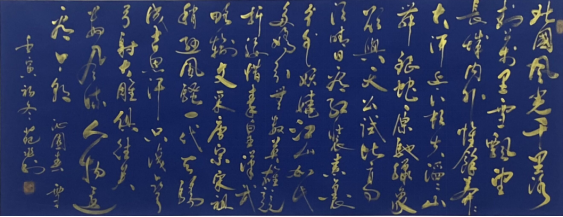 北國風光千里冰
封萬里雪飄望
長城內外惟餘莽莽
大河上下頓失滔滔山
舞銀蛇原馳蠟象
欲與天公試比高
須晴日看紅裝素裹
分外妖嬈江山如此
多嬌引無數英雄競
折腰惜秦皇漢武
略輸文采唐宗宋祖
稍遜風騷一代天驕
成吉思汗只識彎
弓射大雕俱往矣
數風流人物還
看今朝 沁園春雪
壬寅初冬